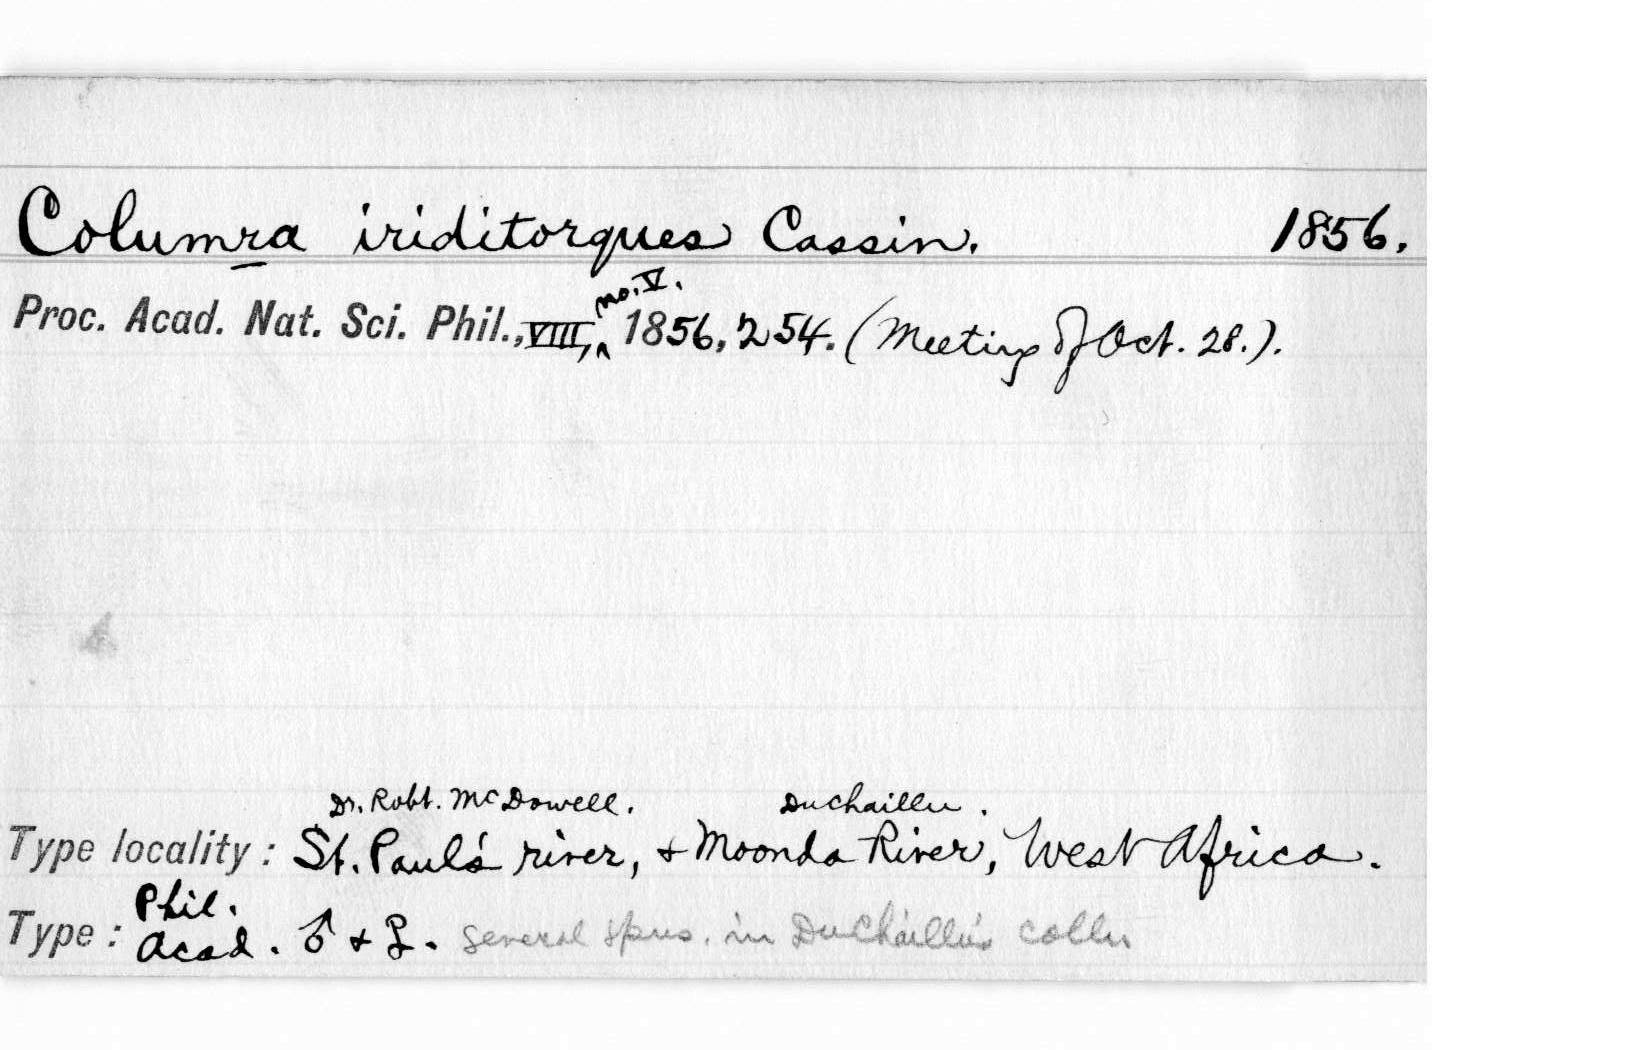 Columra iriditorques Cassin. 1856.
no. V.
Proc. Acad. Nat. Sci. Phil., VIII, ^ 1856, 254. (Meeting of Oct. 28.).
Dr. Robt. McDowell. DuChaillu.
Type locality: St. Paul's river, & Moonda River, West Africa.
Phil.
Type: Acad. ♂ & ♀. several spns. in DuChaillu's colln